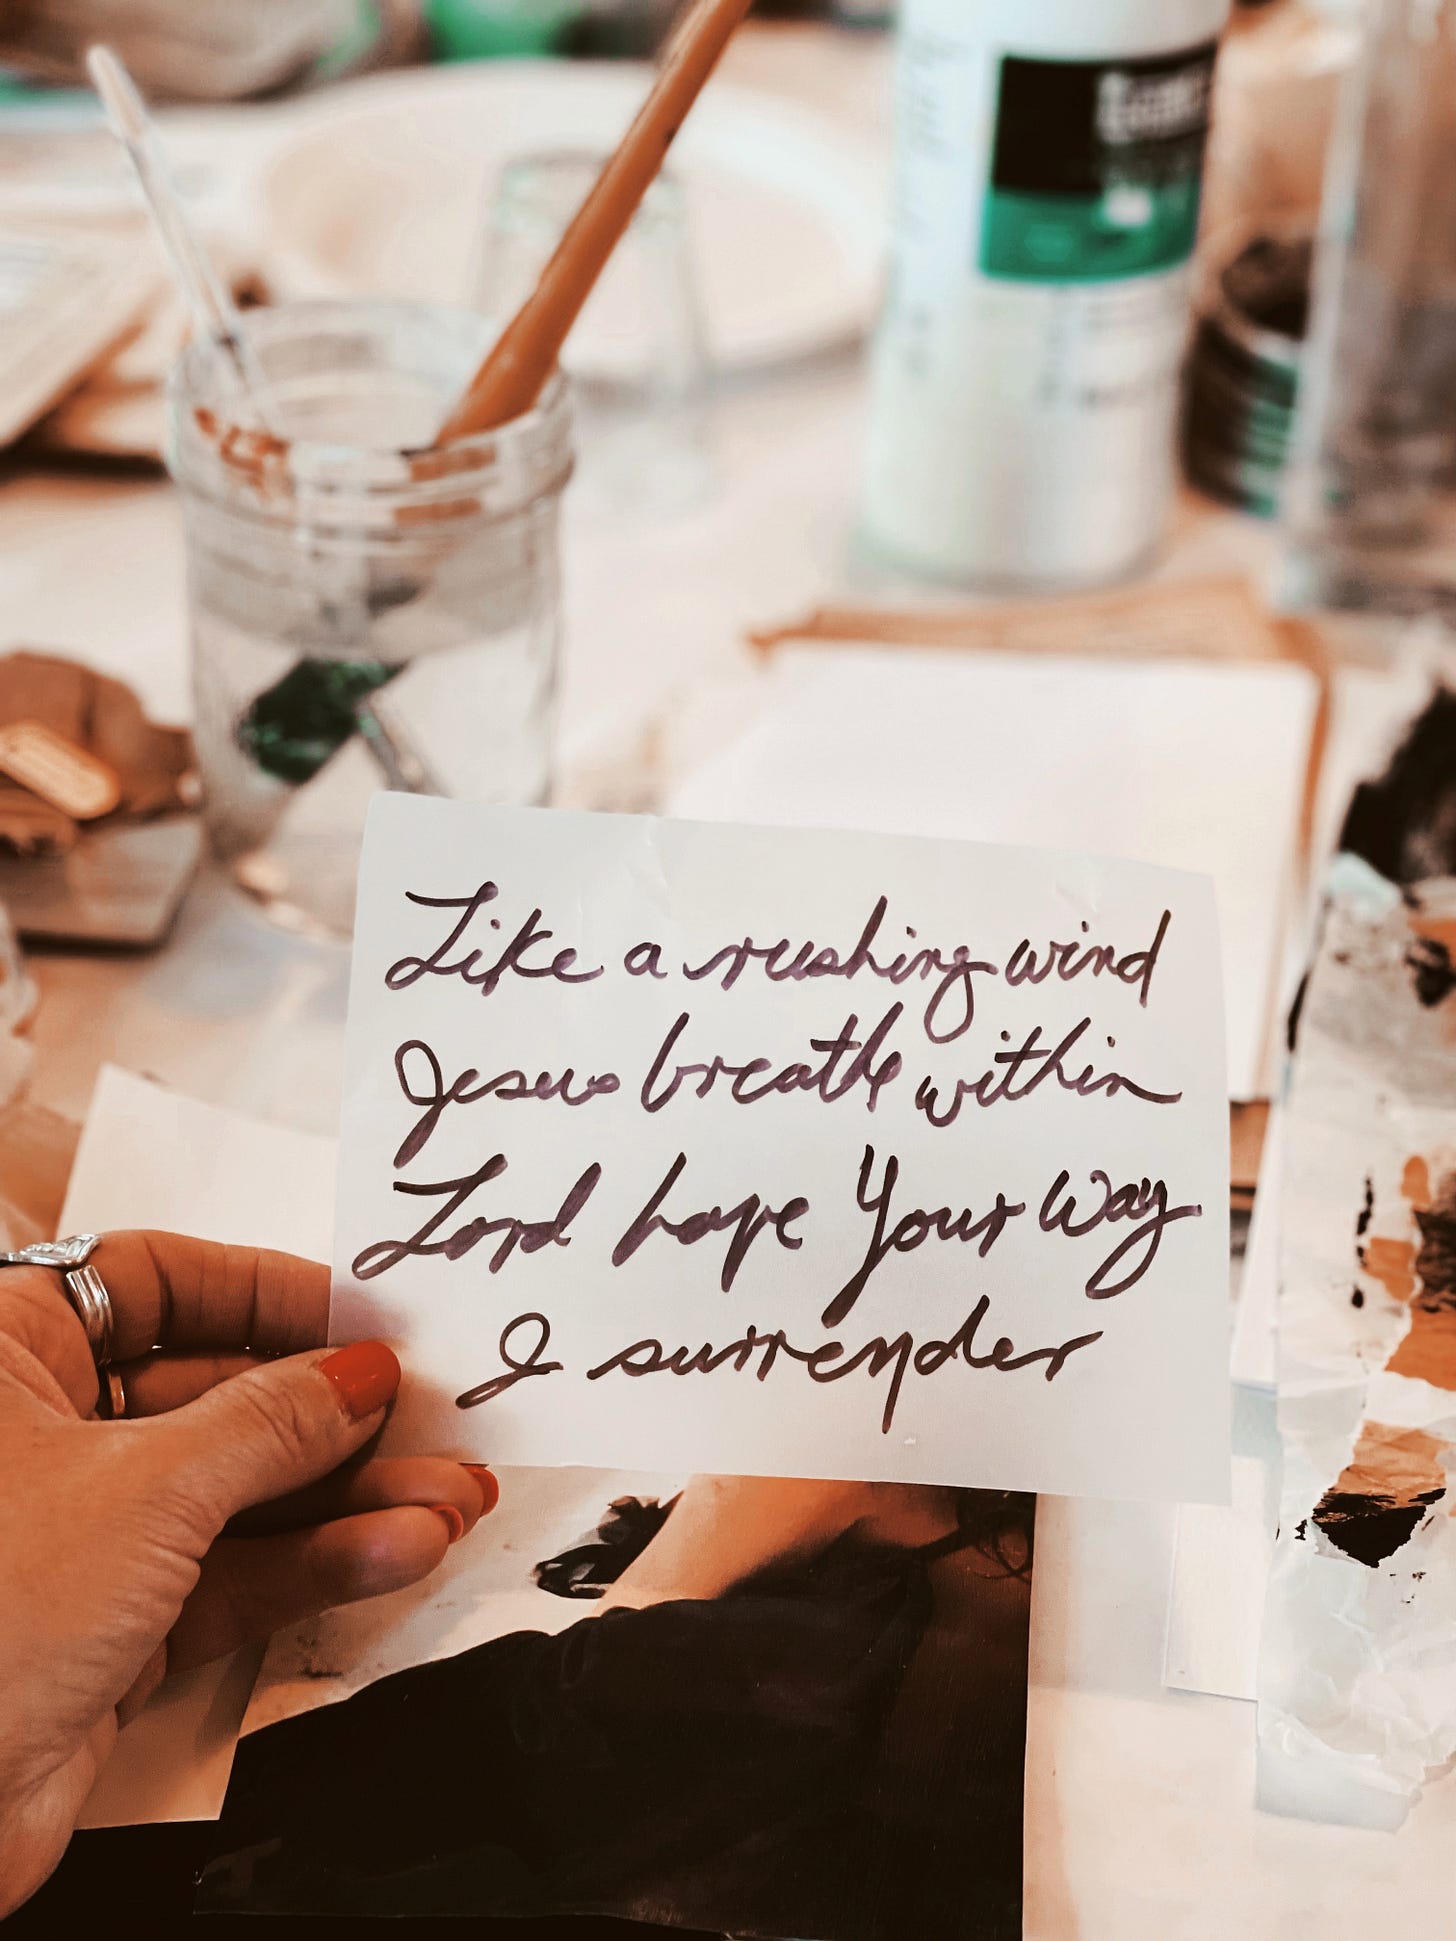 Like a rushing wind
Jesus breathe within
Lord have Your Way
I surrender